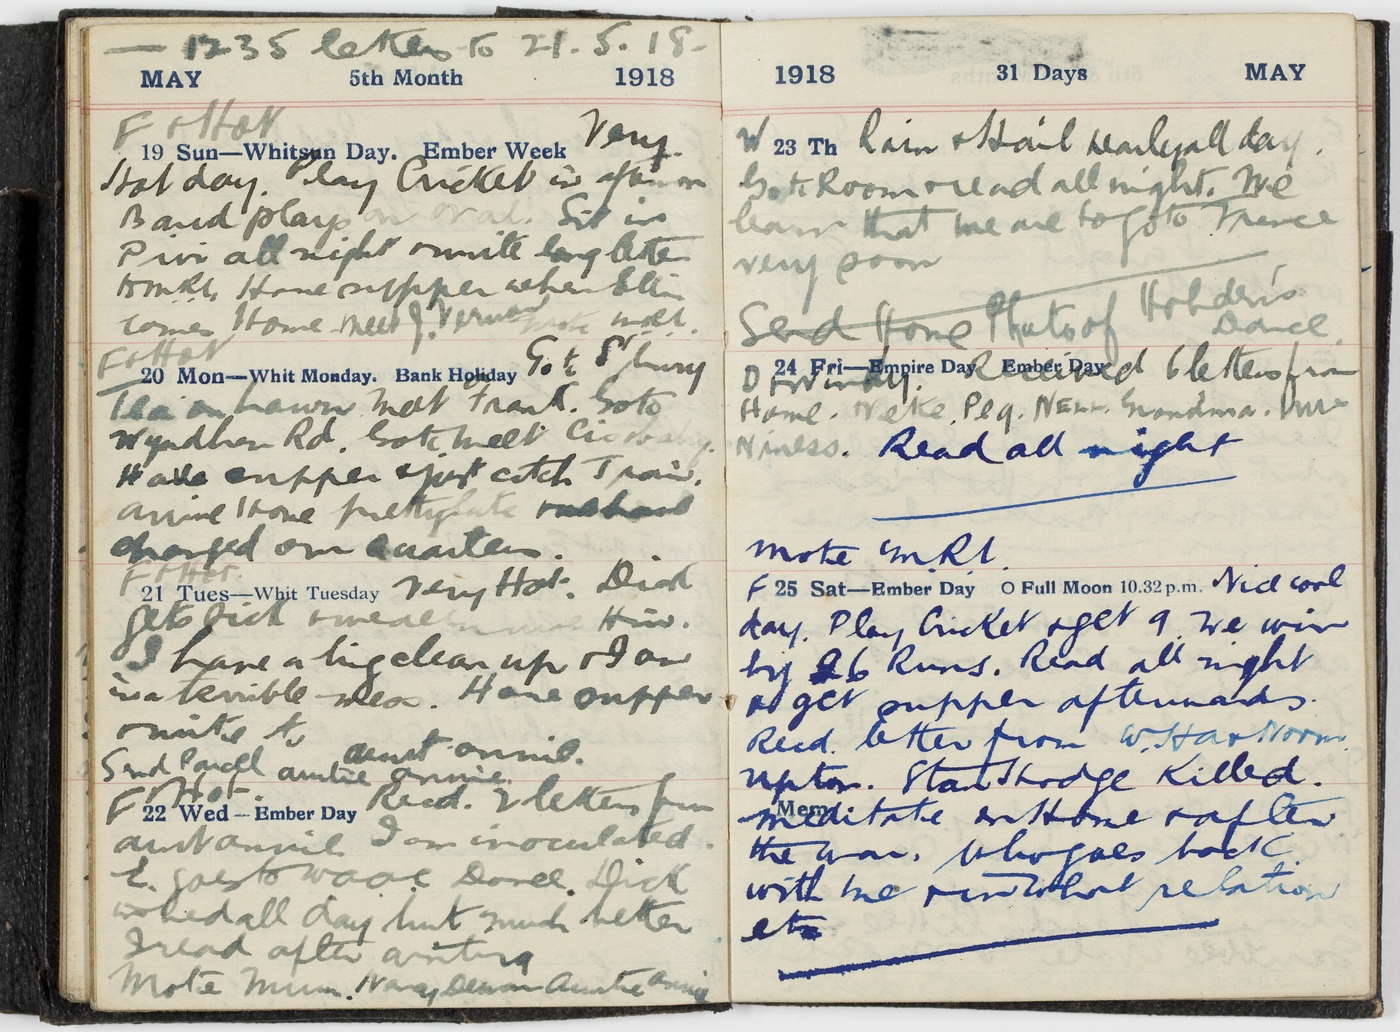 — 1235 letters to 21.5.18-
MAY 5th Month 1918
F & Hot
19 Sun—Whitsun Day. Ember Week Very
Hot day. Play Cricket in
Band plays on oval. Sit in
all night & write long letter
Have supper when
comes Home meet J. Vernon wrote
F & Hot
20 Mon—Whit Monday. Bank Holiday Go to
Tea on Lawn Meet Frank. Go to
Wyndham Rd. Go to meet
Have supper & just catch Train.
arrive Home pretty late
changed our quarters.
F & Hot.
21 Tues—Whit Tuesday Very Hot. Dick
gets sick him.
I have a big clean up & I am
in a terrible mess. Have supper
& write to
aunt annie.
Send Parcel auntie annie.
F & Hot.
22 Wed—Ember Day Recd. 2 letters from
aunt annie I am inoculated.
E. goes to waac Dance. Dick
in bed all day but much better
I read after writing
Wrote Mum. Auntie Annie
1918 31 Days MAY
W
23 Th Rain & Hail nearly all day.
Go to Room & read all night. We
learn that we are to go to France
very soon
Send Home Photo of Holden's
Dance
24 Fri—Empire Day Ember Day Received 6 letters from
D & Windy.
Home. Peg. Nell. Grandma.
Read all night
Wrote M.R.L.
F 25 Sat—Ember Day O Full Moon 10.32 p.m. Nice cool
day. Play Cricket & get 9. We win
by 26 Runs. Read all night
& get supper afterwards.
Recd. letter from W.
Upton. Stan Hodge Killed.
Mem
Meditate on Home & after
the war. Who goes back
with me & in what relation
etc